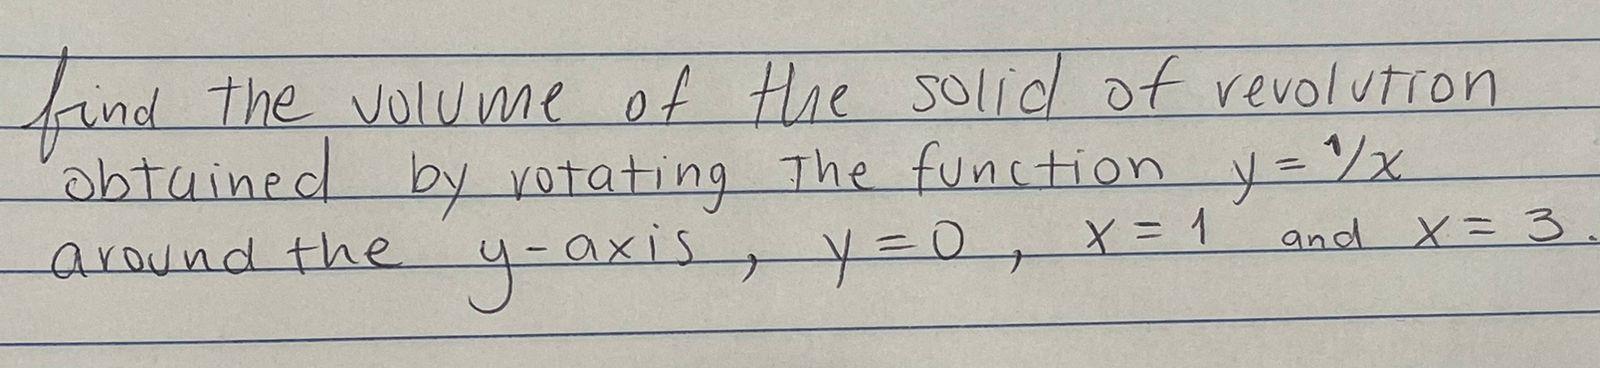 find the volume of the solid of revolution
obtained by rotating The function y = 1/x
around the y-axis, y = 0, x = 1 and x = 3.